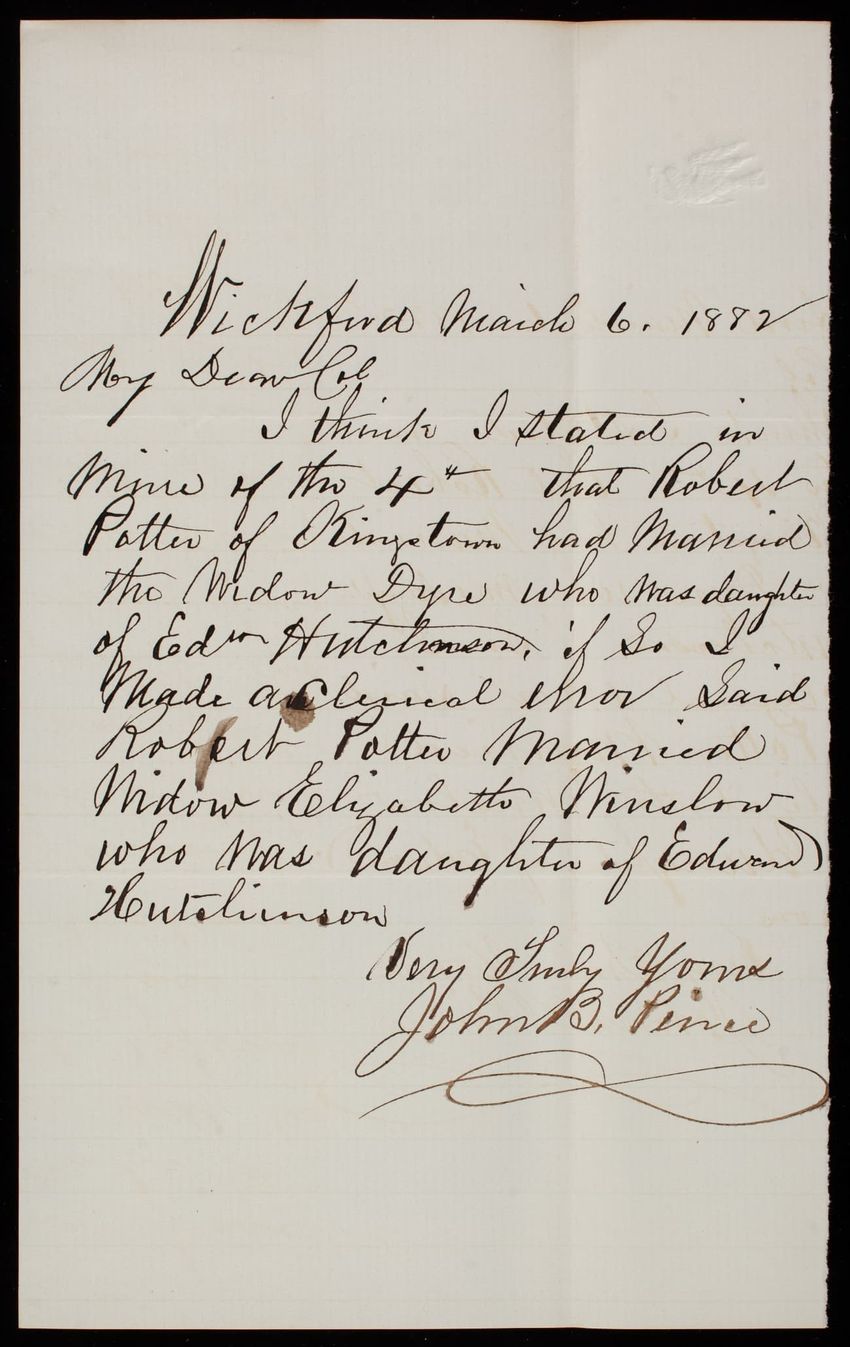 Wickford March 6. 1882
My Dear Col
I think I stated in
Mine of the 4th that Robert
Potter of Kingstown had Married
the Widow Dyre who was daughter
of Edwn Hutchinson, if so I
Made a Clerical error Said
Robert Potter Married
Widow Elizabeth Winslow
who was daughter of Edward
Hutchinson
Very Truly Yours
John B. Peirce